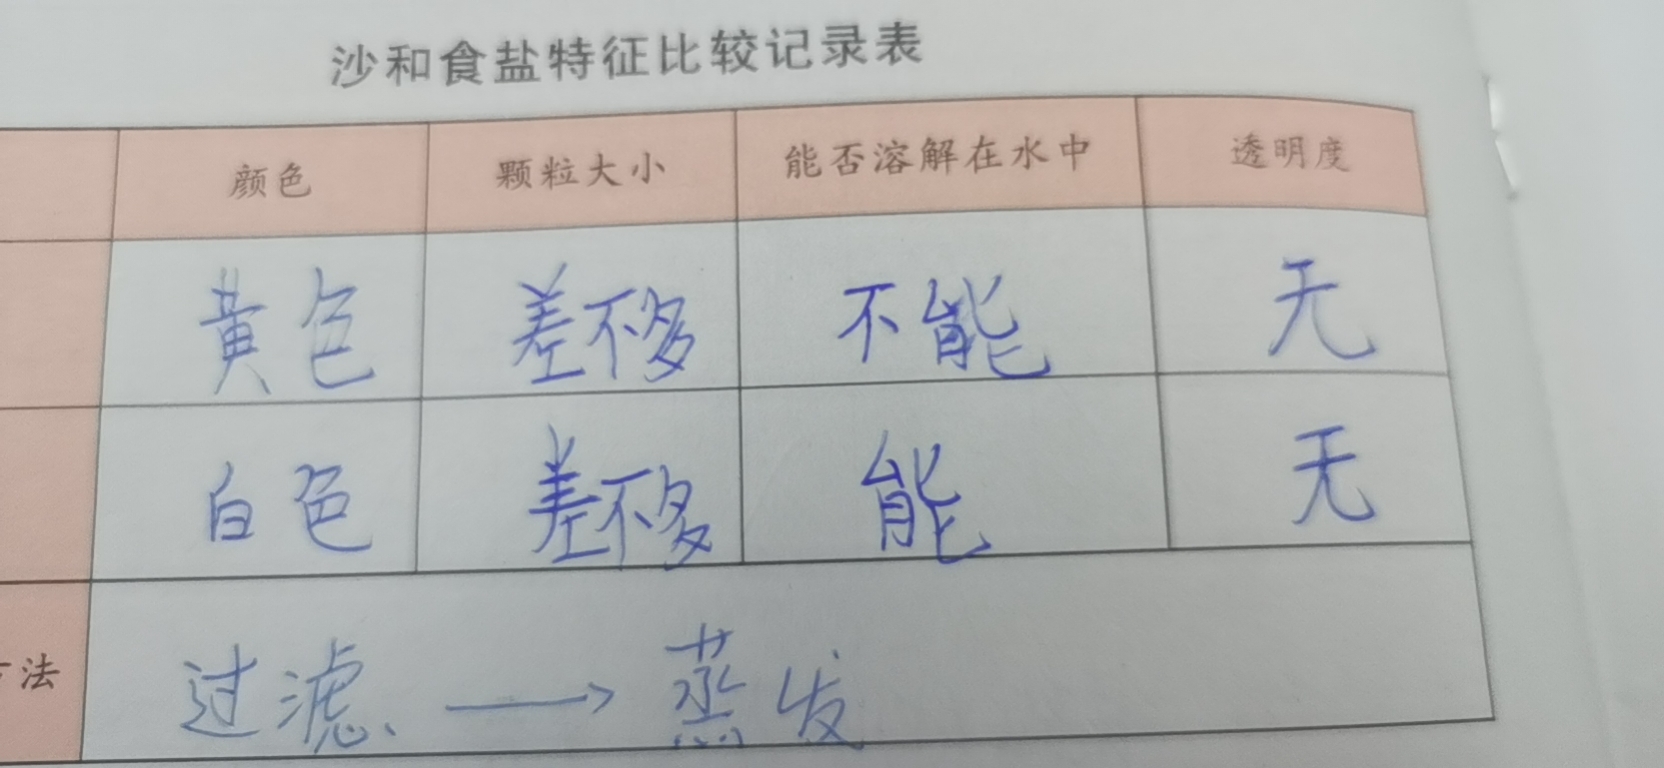 沙和食盐特征比较记录表
颜色 颗粒大小 能否溶解在水中 透明度
黄色 差不多 不能 无
白色 差不多 能 无
法 过滤 → 蒸发